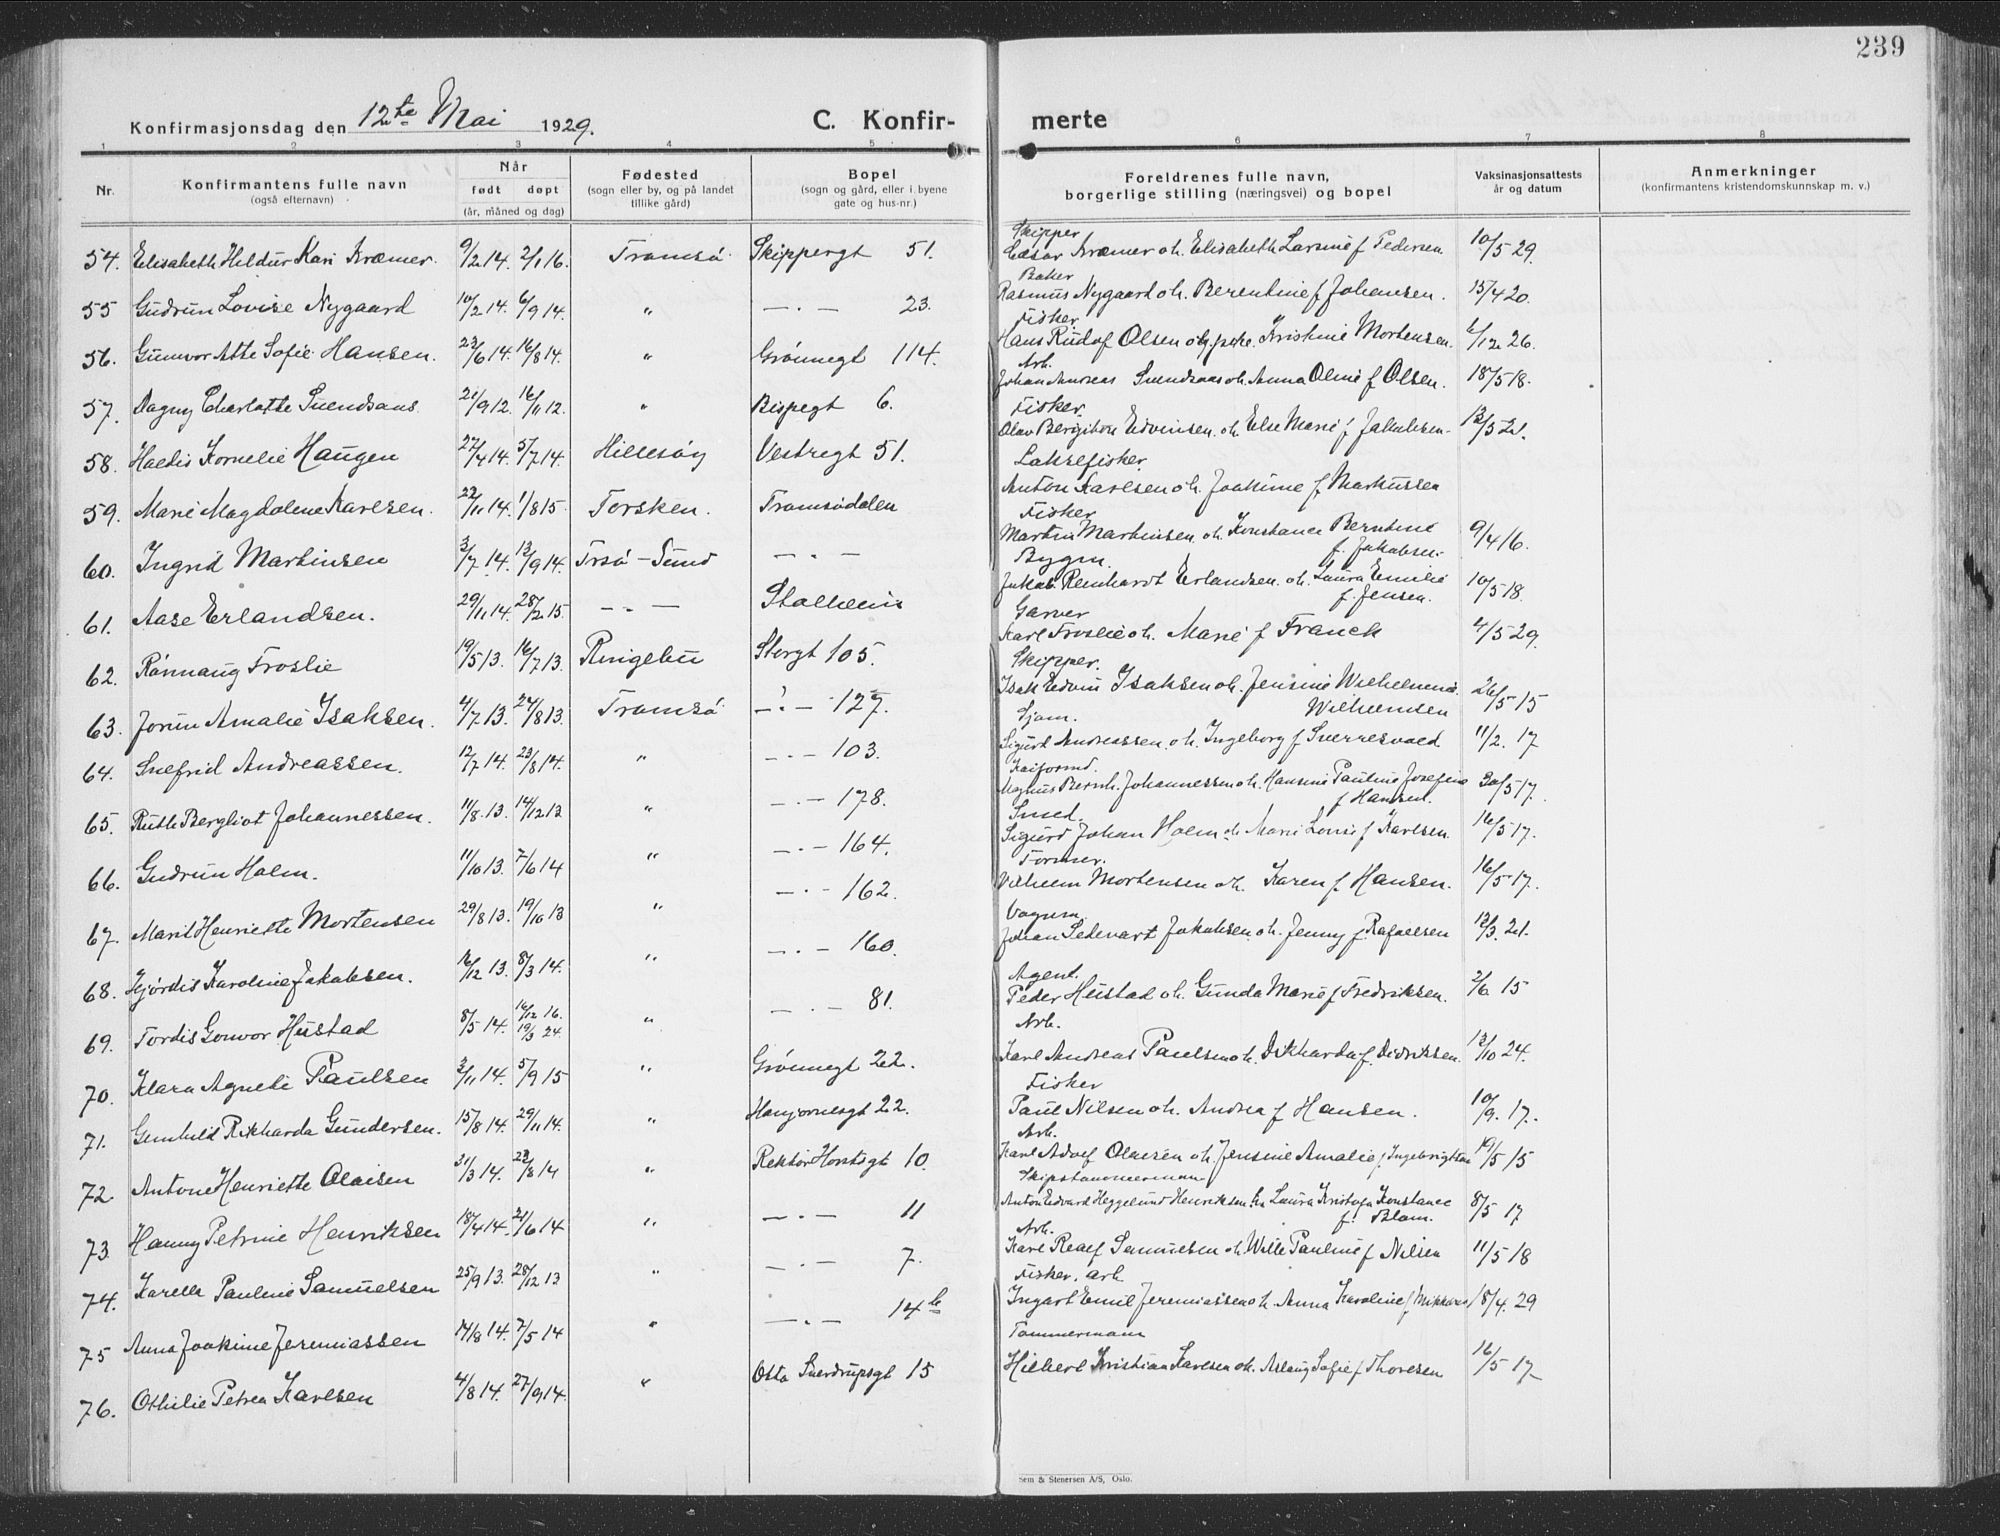 239
Konfirmasjonsdag den 12te Mai 1929.
C. Konfir- merte
1 2 3 4 5 6 7 8
Nr.
Konfirmantens fulle navn
(også efternavn)
Når
født døpt
(år, måned og dag)
Fødested
(sogn eller by, og på landet
tillike gård)
Bopel
(sogn og gård, eller i byene
gate og hus-nr.)
Foreldrenes fulle navn,
borgerlige stilling (næringsvei) og bopel
Vaksinasjonsattests
år og datum
Anmerkninger
(konfirmantens kristendomskunnskap m. v.)
Skipper
54. Elisabeth Hildur Kari Kræmer. 9/2 14. 2/1 16. Tromsø. Skippergt 51. Cæsar Kræmer oh. Elisabeth Larsine f Pedersen 10/5 29.
Baker
55 Gudrun Lovise Nygaard 10/2 14. 6/9 14. " — . — 23. Rasmus Nygaard oh. Berentine f Johansen. 15/4 20.
Fisker
56. Gunvor Atte Sofie Hansen. 23/6 14. 16/8 14. " Grønnegt 114. Hans Rudolf Olsen Kristine Mortensen. 6/12 26.
Arb.
57. Dagny Charlotte Svendsaas. 21/9 12. 16/11 12. " Bispegt 6. Johan Andreas Svendsaas oh. Anna Oline f Olsen. 18/5 18.
Fisker.
58. Haldis Kornelie Haugen 27/4 14. 5/7 14. Hillesøy Vestregt 51. Olav Bergiton Edvinsen. oh. Else Marie f Jakobsen. 13/5 21.
Laksefisker.
59. Marie Magdalene Karlsen. 22/11 14. 1/8 15. Torsken. Tromsødalen Anton Karlsen oh. Joakime f Markussen
Fisker
60. Ingrid Martinsen 3/7 14. 13/9 14. Trsø-Sund — . — Martin Martinsen oh. Konstance Berntine 9/4 16.
f. Jakobsen.
Bygm.
61. Aase Erlandsen. 29/11 14. 28/2 15. — . — Stalheim Jakob Renhardt Erlandsen. oh. Laura Emilie 10/5 18.
f. Jensen.
Garver
62. Rønnaug Froslie 19/5 13. 16/7 13. Ringebu Storgt 105. Karl Froslie oh. Marie f Franck 4/5 29.
Skipper.
63. Jorun Amalie Isaksen. 4/7 13. 24/8 13. Tromsø. — . — 127. Isak Edvin Isaksen oh. Jensine Wilhelmene 26/5 15
Wilhelmsen
Sjøm.
64. Snefrid Andreassen. 12/7 14. 23/8 14. " — . — 103. Sigurd Andreassen. oh. Ingeborg f Sverresvold 11/2. 17
Kaiformd.
65. Ruth Bergliot Johannessen. 11/8. 13. 14/12 13 " — . — 178. Magnus Bernh. Johannessen oh. Hansine Pauline Josefine 30/5 17.
f Hansen.
Smed.
66. Gudrun Holm. 11/10 13. 7/6 14 " — . — 164. Sigurd Johan Holm oh. Marie Lovise f Karlsen. 16/5 17.
Former.
67. Marit Henriette Mortensen 29/8 13. 19/10 13 " — . — 162. Vilhelm Mortensen oh. Karen f Hansen. 16/5 17.
Vognm.
68. Hjørdis Karoline Jakobsen. 16/12 13. 8/3 14. " — . — 160. Johan Sedevart Jakobsen. oh. Jenny f. Rafaelsen 13/3. 21.
Agent.
69. Tordis Gonvor Hustad 8/5 14. 16/12 16. 19/3 24. " — . — 81. Peder Hustad oh. Gunda Marie f Fredriksen. 2/6 15
Arb.
70. Klara Agnete Paulsen 3/11 14. 5/9 15 " Grønnegt 22. Karl Andreas Paulsen oh. Rikharda f. Didriksen. 13/10 24.
Fisker
71. Gunhild Rikharda Gundersen. 15/8 14. 29/11 14. " 22. Paul Nilsen oh. Andrea f Hansen. 10/9. 17.
Arb.
72. Antone Henriette Olaisen 31/3 14. 23/8 14 " Rektor Horstsgt 10. Karl Adolf Olaisen oh. Jensine Amalie f Ingebrigtsen 19/5 15
Skipstømmermann
73. Hanny Petrine Henriksen 18/4 14. 21/6 14 " — . — 11 Anton Edvard Heggelund Henriksen. oh Laura Kristofa Konstance 8/5 17
f. Blom.
Arb.
74. Karella Pauline Samuelsen 25/9 13. 28/12 13 " — . — 7. Karl Roald Samuelsen oh. Wille Pauline f Nilsen 11/5 18
Fisker. arb
75 Anna Joakime Jeremiassen 14/8 14. 7/5 14 " — . — 14b Ingart Emil Jeremiassen oh. Anna Karoline f Mikkelsen 18/4. 29
Tømmermann
76. Othilie Petrea Karlsen 4/8 14. 27/9 14. " Otto Sverdrupsgt 15 Hilbert Kristian Karlsen oh. Aslaug Sofie f Thoresen 16/5 17
Sem & Stenersen A/S, Oslo.